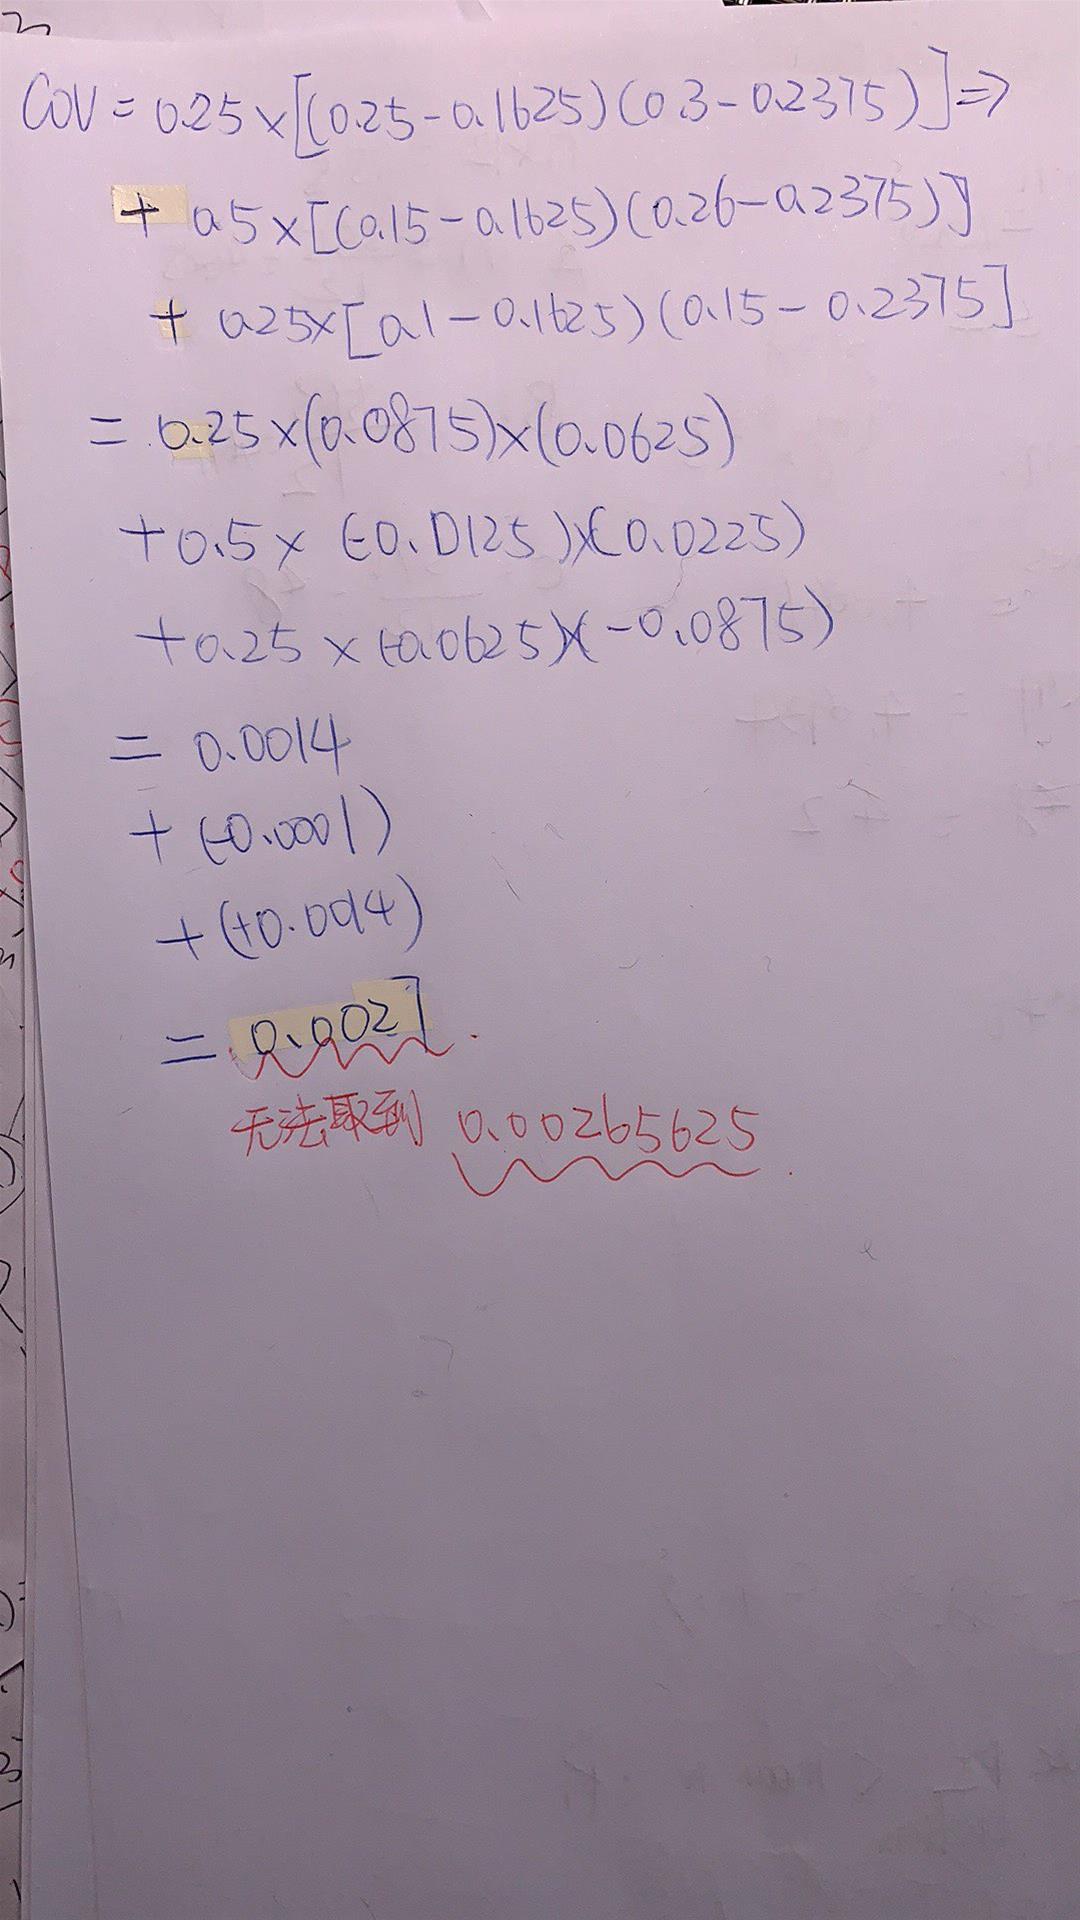 COV = 0.25 × [(0.25 - 0.1625)(0.3 - 0.2375)] ⇒
+ 0.5 × [(0.15 - 0.1625)(0.26 - 0.2375)]
+ 0.25 × [0.1 - 0.1625)(0.15 - 0.2375]
= 0.25 × (0.0875) × (0.0625)
+ 0.5 × (-0.0125) × (0.0225)
+ 0.25 × (-0.0625) × (-0.0875)
= 0.0014
+ (-0.0001)
+ (+0.0014)
= 0.0027
无法取到 0.00265625